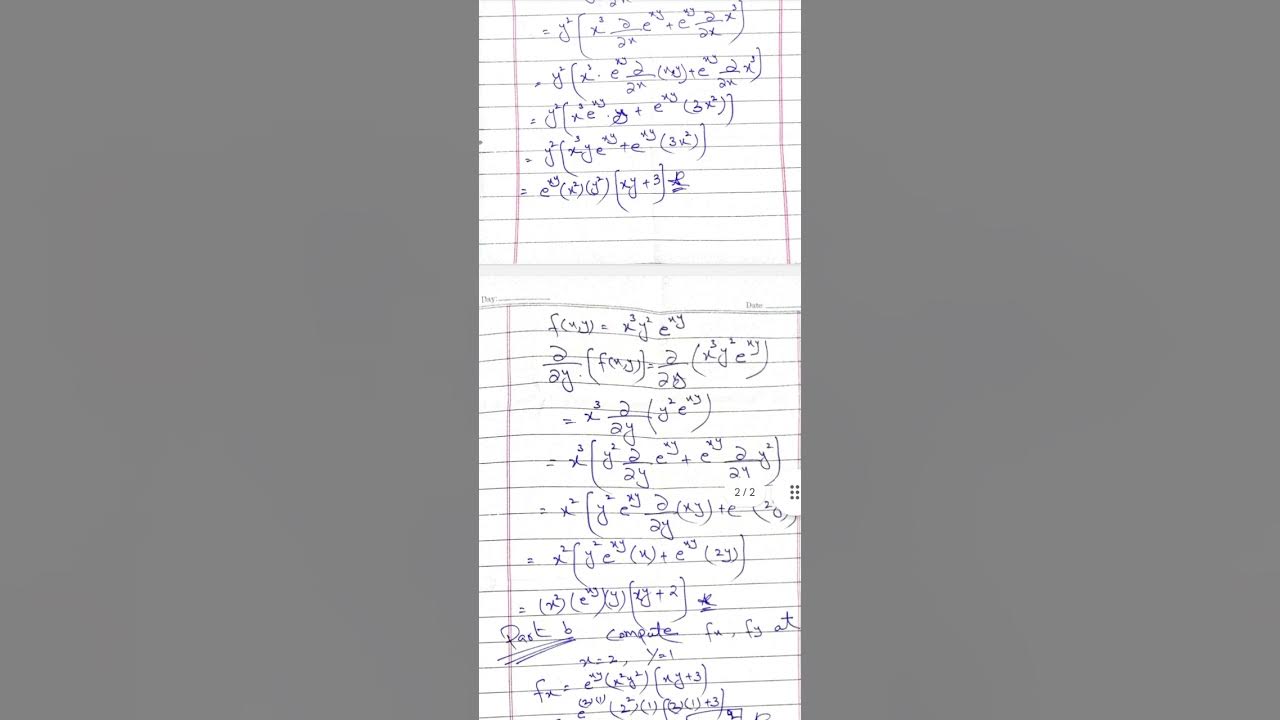 = y² [ x³ ∂/∂x e^xy + e^xy ∂/∂x x³ ]
= y² [ x³ · e^xy ∂/∂x (xy) + e^xy ∂/∂x x³ ]
= y² [ x³ e^xy · y + e^xy (3x²) ]
= y² [ x³ y e^xy + e^xy (3x²) ]
= e^xy (x²) (y²) [ xy + 3 ]
Day: Date
f(x,y) = x³ y² e^xy
∂/∂y · [ f(x,y) ] = ∂/∂y ( x³ y² e^xy )
= x³ ∂/∂y ( y² e^xy )
= x³ [ y² ∂/∂y e^xy + e^xy ∂/∂y y² ]
2 / 2
= x² [ y² e^xy ∂/∂y (xy) + e
= x² [ y² e^xy (x) + e^xy (2y) ]
= (x²) (e^xy) (y) [ xy + 2 ]
Part b compute fx, fy at
x = 2, y = 1
fx = e^xy (x² y²) [ xy + 3 ]
e^(2)(1) (2²) (1) [ (2) (1) + 3 ]